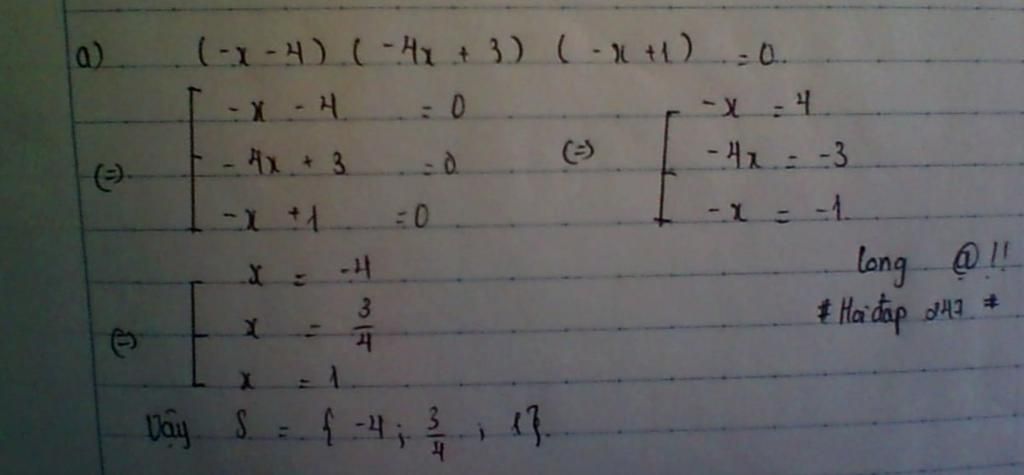 a) (-x - 4) (-4x + 3) (-x + 1) = 0.
(=) [ -x - 4 = 0 (=) [ -x = 4
-4x + 3 = 0 -4x = -3
-x + 1 = 0 -x = -1
(=) [ x = -4
x = 3/4
x = 1
long @ !!
* Hoi đáp 247 *
Vậy S = { -4 ; 3/4 ; 1 }.